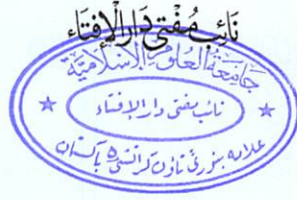 نَائِب مُفْتِي دَارُ الْإِفْتَاء
جَامِعَةُ الْعُلُوْمِ الْإِسْلَامِيَّة
نائب مفتی دار الافتاء
علامہ بنوری ٹاؤن کراتشی ۵ باکستان